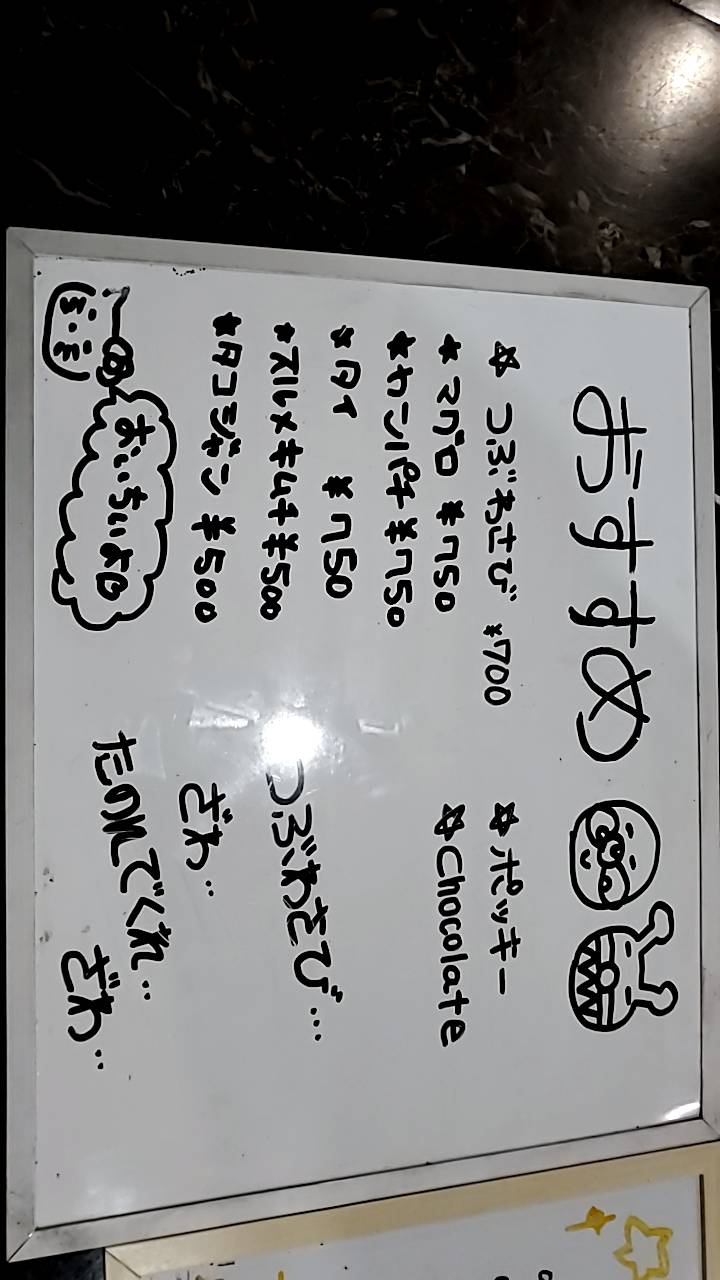 おすすめ
☆ つぶわさび ¥700
★マグロ ¥750
★カンパチ ¥750
★タイ ¥750
★スルメキムチ ¥500
★タコジャン ¥500
☆ポッキー
☆chocolate
つぶわさび…
ざわ…
たのんでくれ…
ざわ…